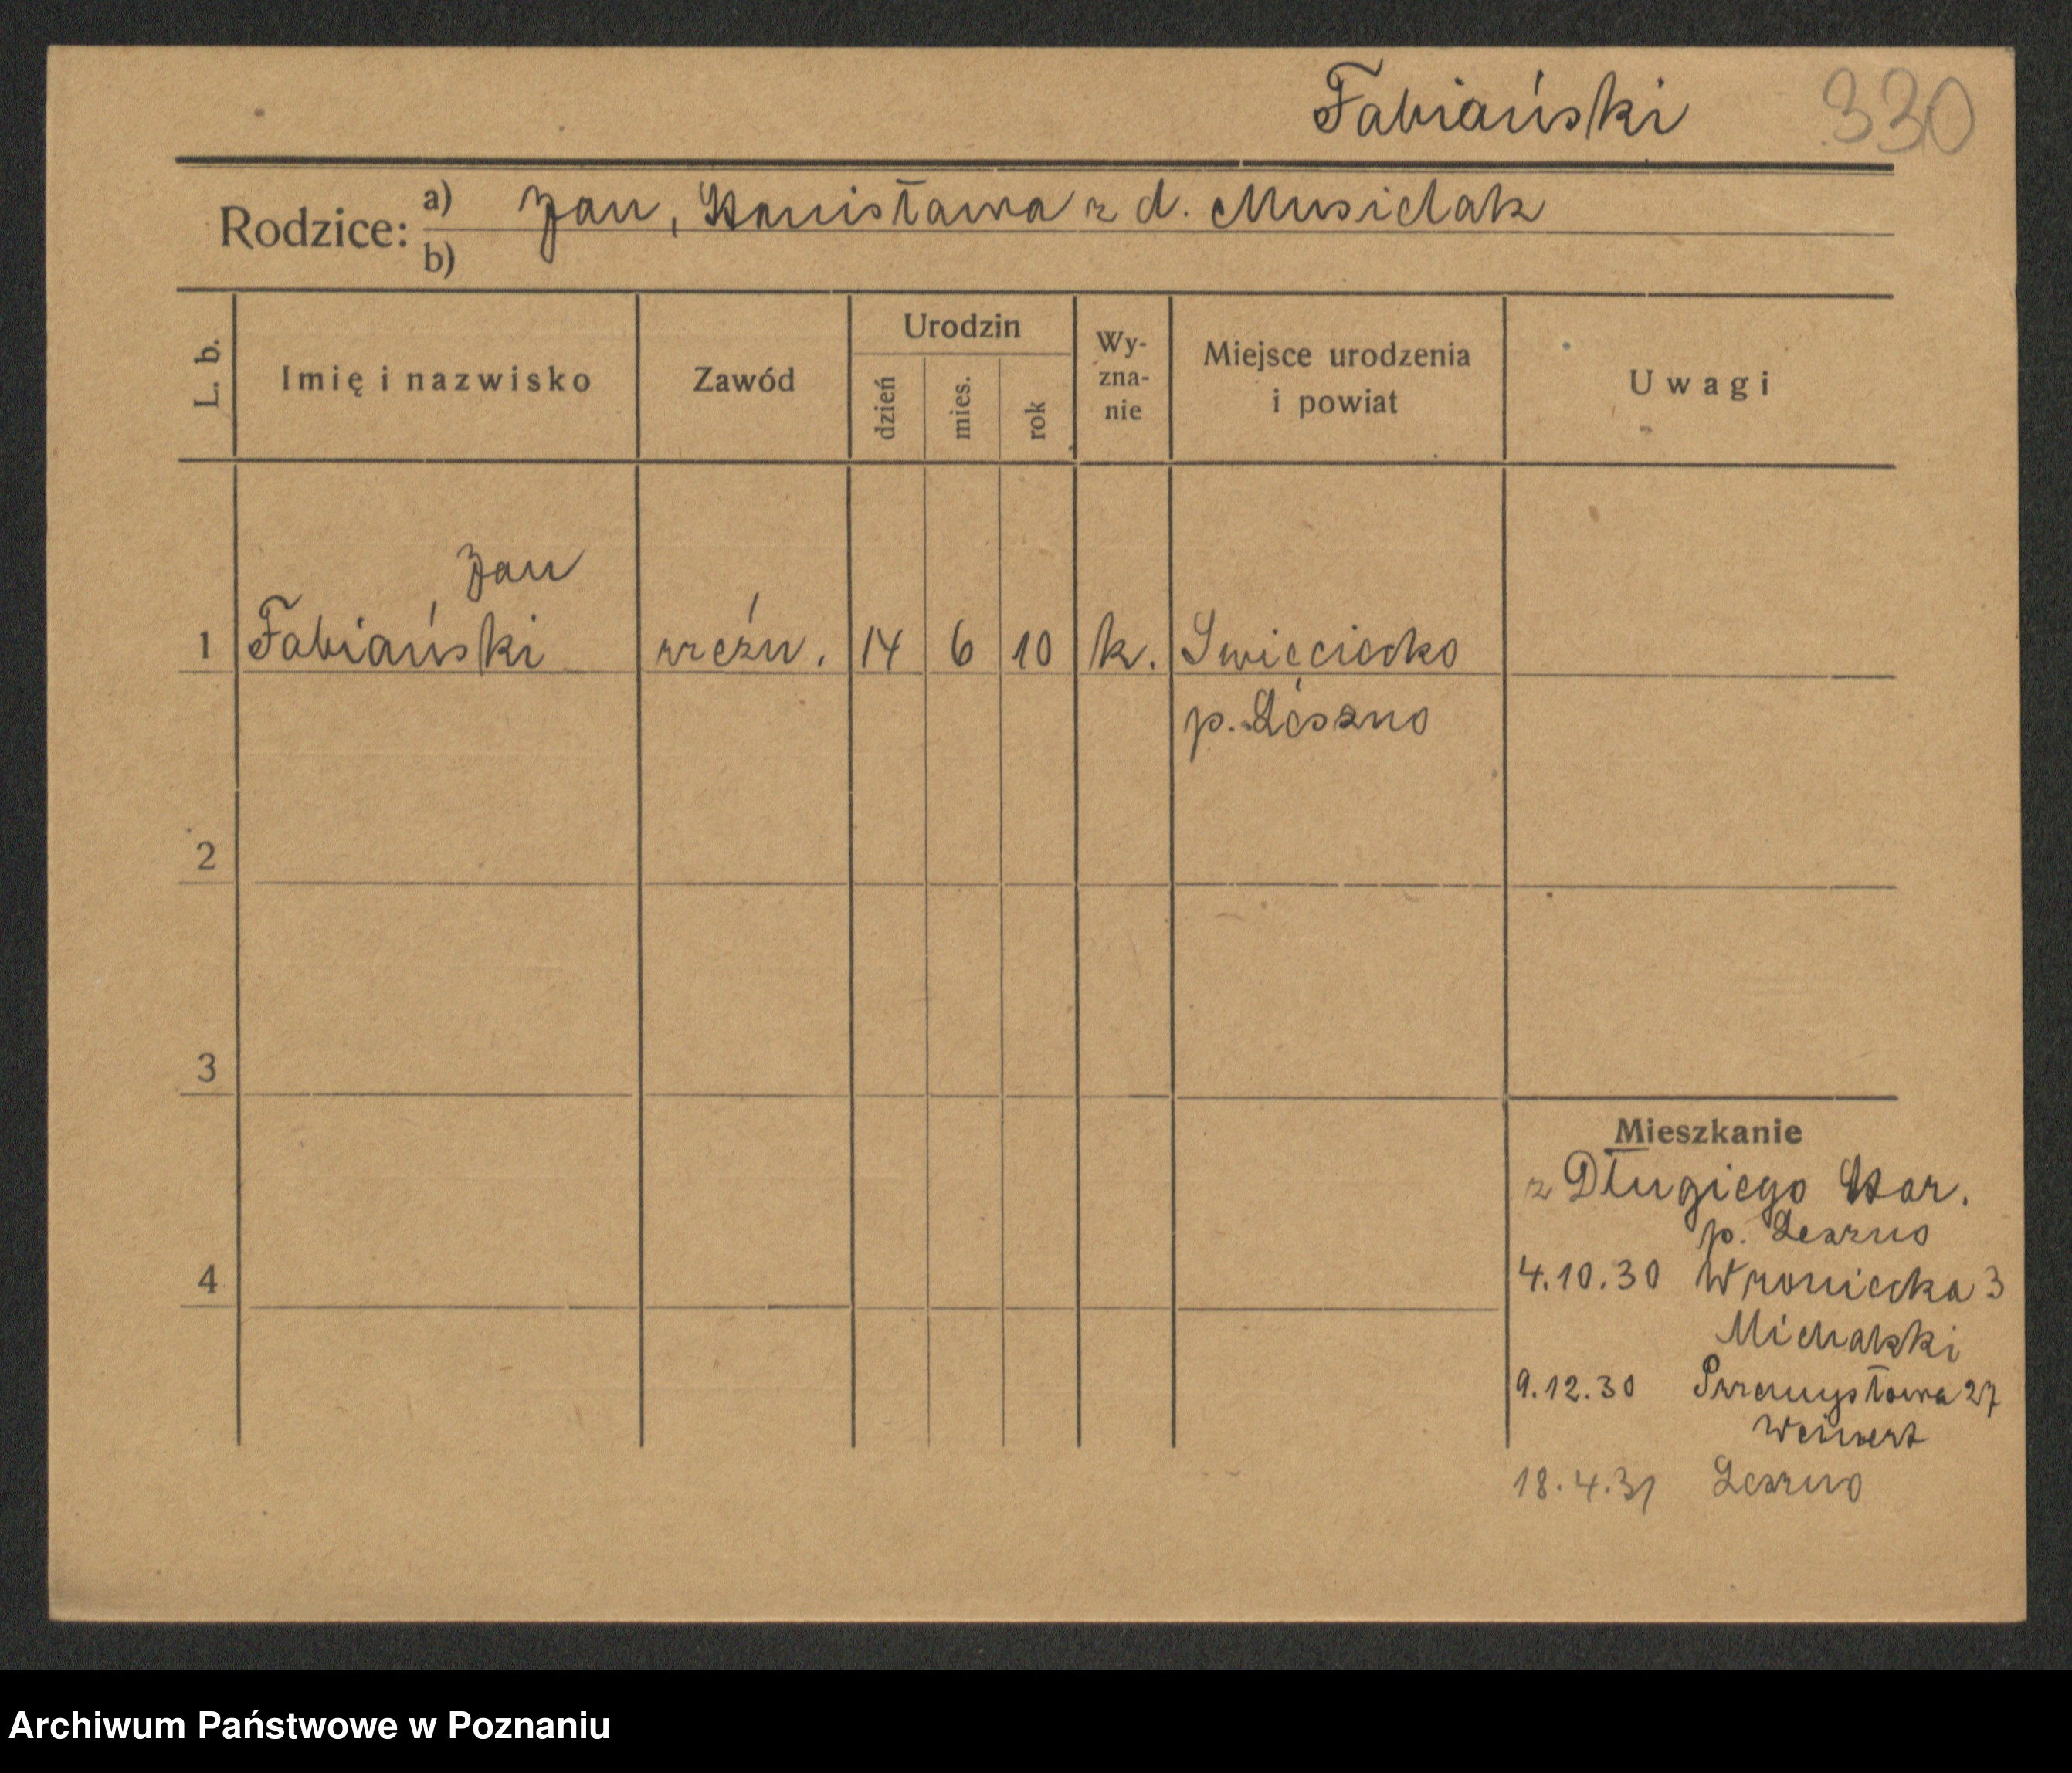 Fabiański 330
Rodzice: a) Jan, Stanisława z d. Musielak
b)
L. b. Imię i nazwisko Zawód Urodzin dzień mies. rok Wy-zna-nie Miejsce urodzenia i powiat Uwagi
Jan
1 Fabiański rzeźn. 14 6 10 k. Święciecko
p. Leszno
2
3
Mieszkanie
z Długiego Star.
p. Leszno
4
4.10.30 Wroniecka 3
Michalski
9.12.30 Przemysłowa 27
Weinert
18.4.31 Leszno
Archiwum Państwowe w Poznaniu